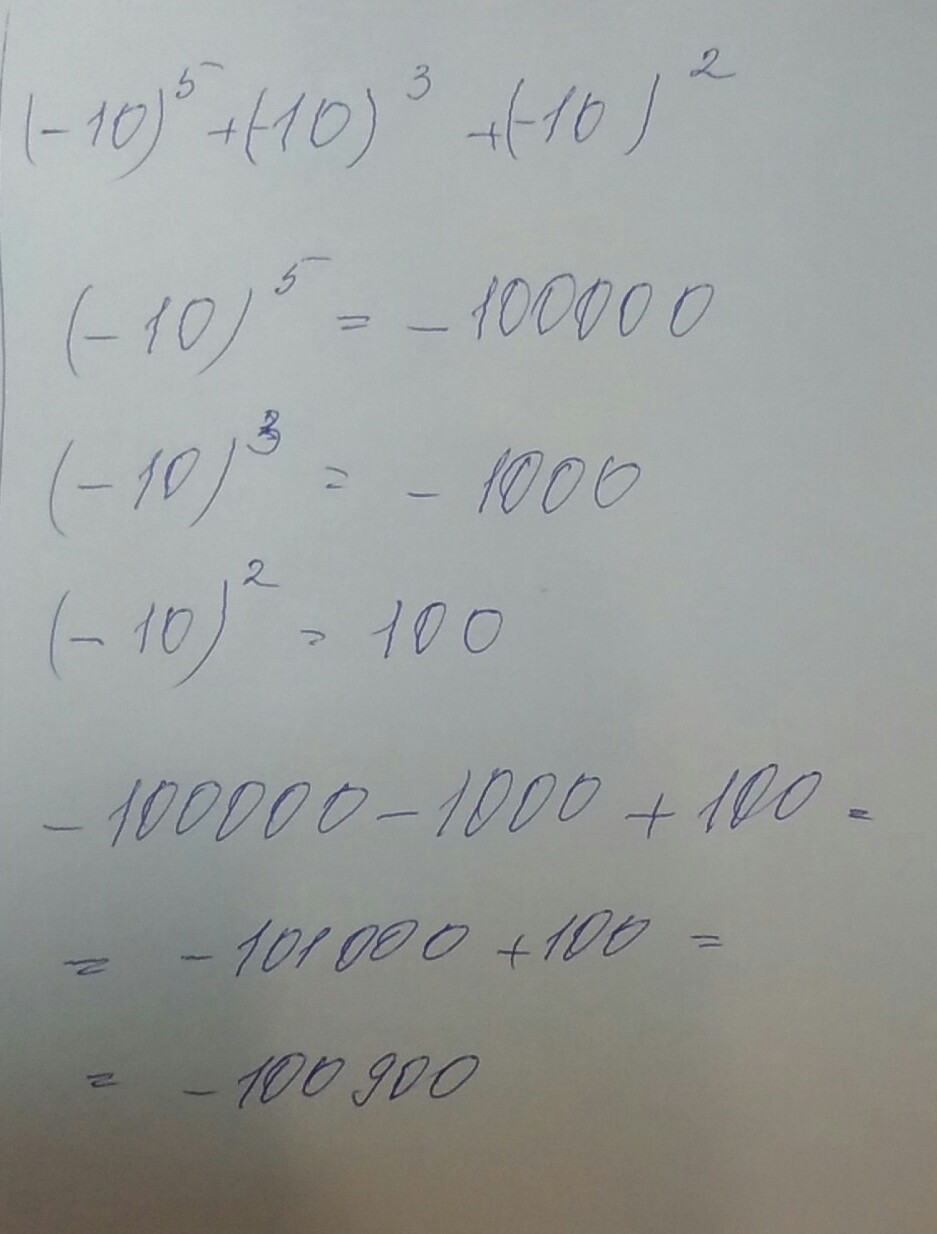 (-10)⁵+(-10)³+(-10)²
(-10)⁵ = -100000
(-10)³ = -1000
(-10)² = 100
-100000-1000+100=
= -101000+100=
= -100900